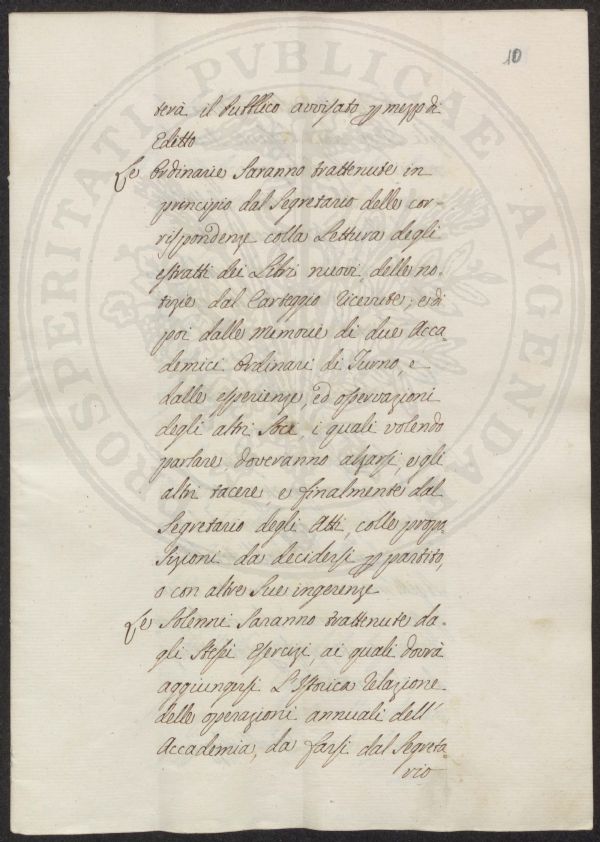 10
PROSPERITATI PVBLICAE AVGENDAE
terà il Pubblico avvisato per mezzo di
Editto
Le Ordinarie saranno trattenute in
principio dal Segretario delle cor-
rispondenze colla Lettura degli
estratti dei Libri nuovi, delle no-
tizie dal Carteggio ricevute; e di
poi dalle memorie di due Acca-
demici Ordinari di Turno, e
dalle esperienze, ed osservazioni
degli altri Soci, i quali volendo
parlare, doveranno alzarsi, e gli
altri tacere e finalmente dal
Segretario degli Atti, colle propo-
sizioni da decidersi per partito,
o con altre sue ingerenze
Le Solenni saranno trattenute da-
gli stessi Esercizi, ai quali dovrà
aggiungersi l'Istorica relazione
delle operazioni annuali dell'
Accademia, da farsi dal Segreta-
rio